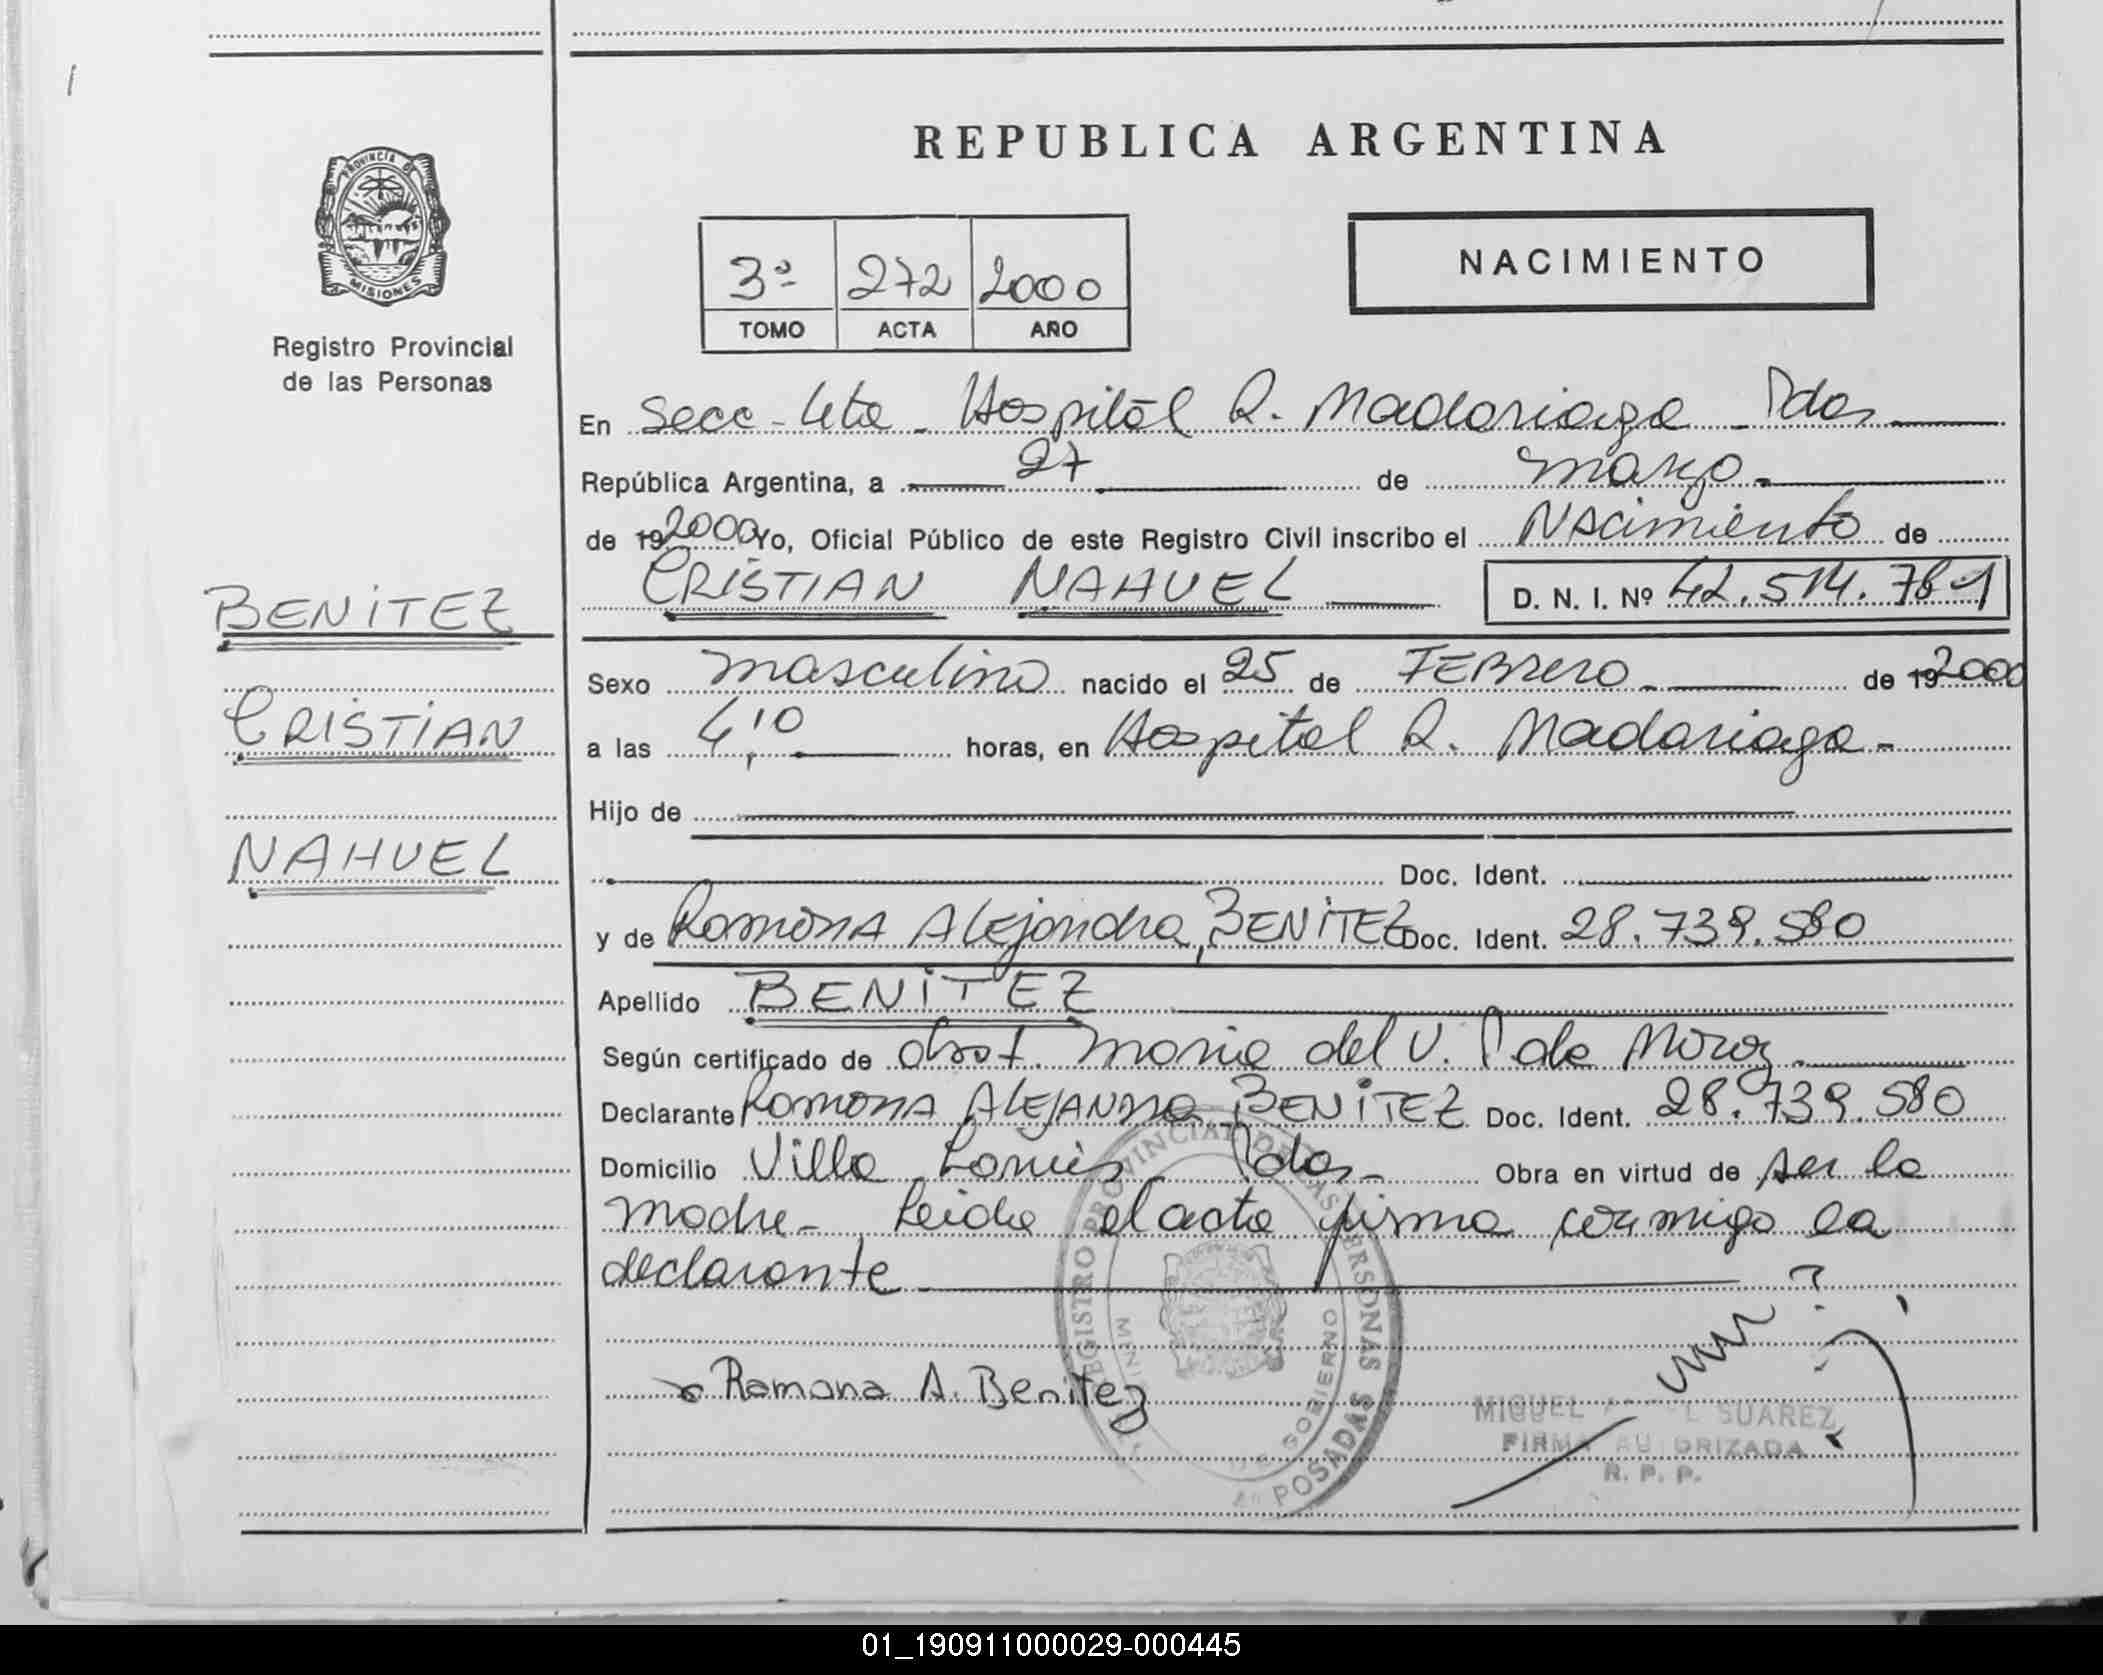 REPUBLICA ARGENTINA
PROVINCIA D
MISIONES
Registro Provincial
de las Personas
NACIMIENTO
3º 272 2000
TOMO ACTA AÑO
En Secc - 4ta - Hospital R. Madariaga - Pdas
República Argentina, a 27 de marzo
de 19 2000 Yo, Oficial Público de este Registro Civil inscribo el Nacimiento de
CRISTIAN NAHUEL D. N. I. Nº 42.514.781
BENITEZ
CRISTIAN
NAHUEL
Sexo masculino nacido el 25 de FEBrero de 19 2000
a las 4,10 horas, en Hospital R. Madariaga -
Hijo de
Doc. Ident.
y de Ramona Alejandra, BENITEZ Doc. Ident. 28.739.580
Apellido BENITEZ
Según certificado de obst. Maria del V. P de
Declarante Ramona ALEJANDRA BENITEZ Doc. Ident. 28.739.580
Domicilio Villa Pdas - Obra en virtud de ser la
madre - Leida el acta firma conmigo la
declarante
Ramona A. Benitez
REGISTRO PROVINCIAL DE LAS PERSONAS
DE GOBIERNO
POSADAS
MIGUEL SUAREZ
FIRMA AUTORIZADA
R. P. P.
01_190911000029-000445